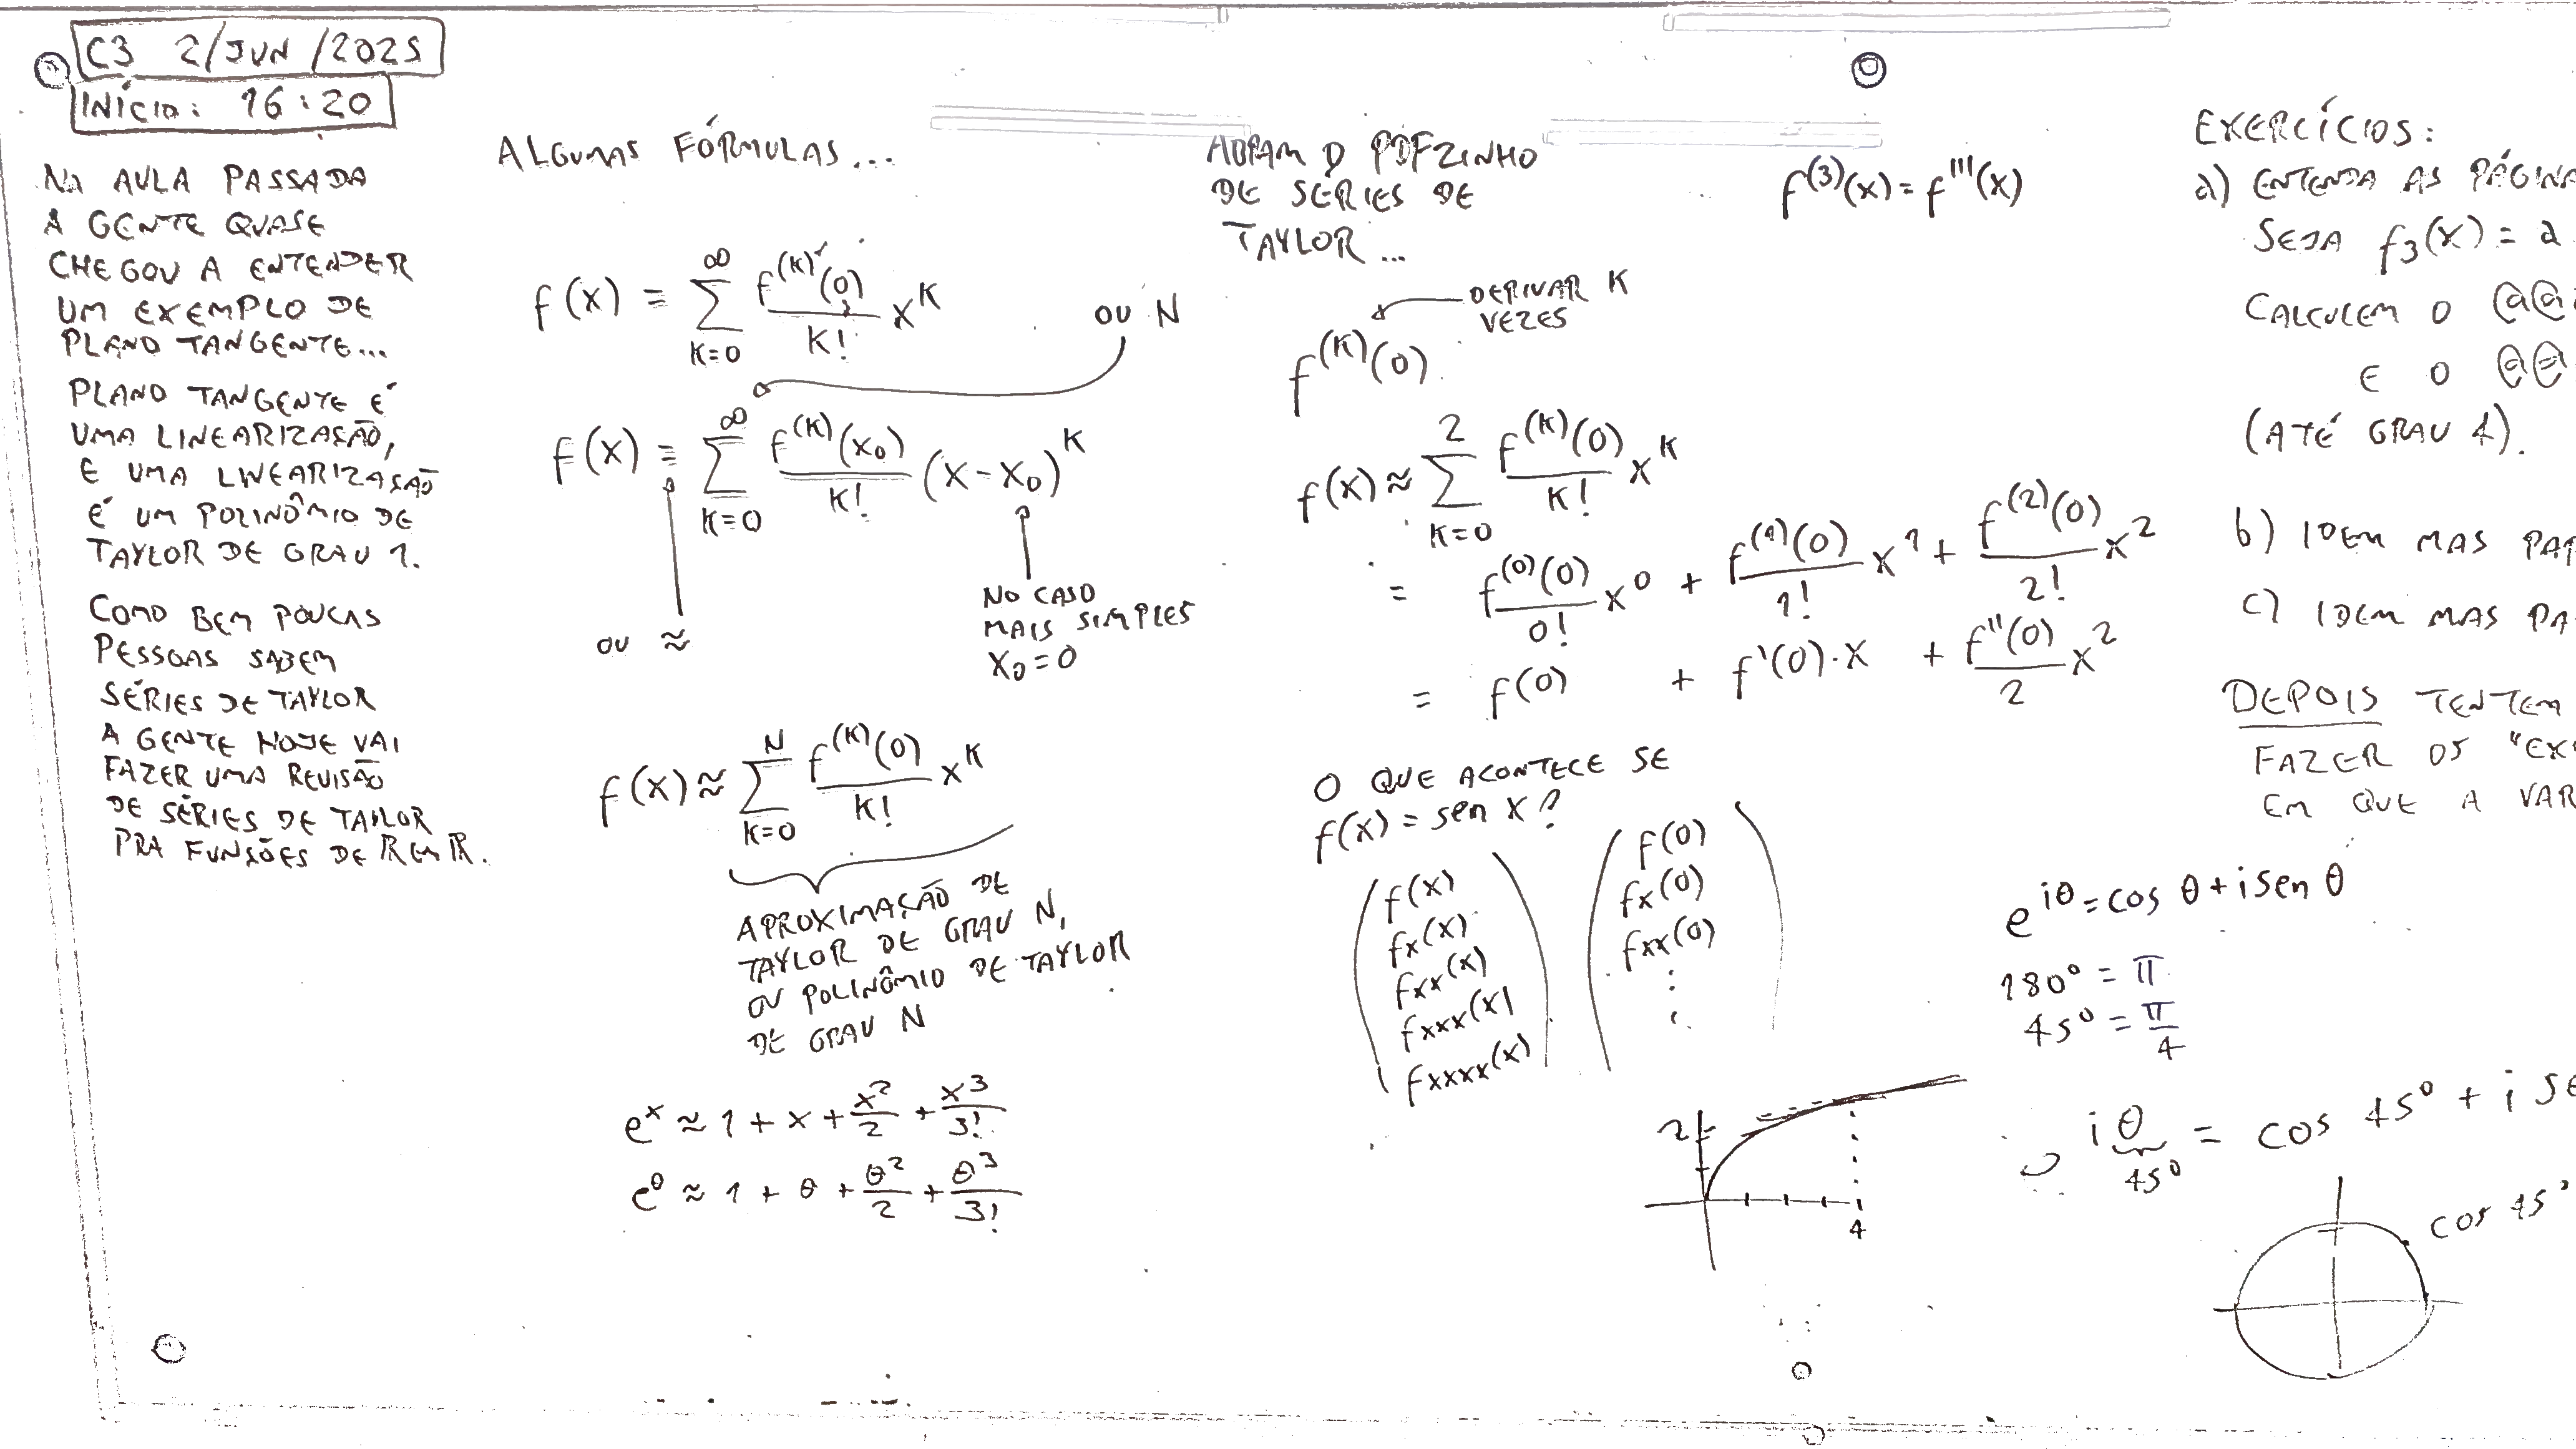 C3 2/JUN/2025
INÍCIO: 16:20
NA AULA PASSADA
A GENTE QUASE
CHEGOU A ENTENDER
UM EXEMPLO DE
PLANO TANGENTE...
PLANO TANGENTE É
UMA LINEARIZAÇÃO,
E UMA LINEARIZAÇÃO
É UM POLINÔMIO DE
TAYLOR DE GRAU 1.
COMO BEM POUCAS
PESSOAS SABEM
SÉRIES DE TAYLOR
A GENTE HOJE VAI
FAZER UMA REVISÃO
DE SÉRIES DE TAYLOR
PRA FUNÇÕES DE ℝ EM ℝ.
ALGUMAS FÓRMULAS...
f(x) = ∑_{K=0}^{∞} f^{(K)}(0)/K! x^K
OU N
f(x) = ∑_{K=0}^{∞} f^{(K)}(x₀)/K! (x-x₀)^K
OU ≈
NO CASO
MAIS SIMPLES
x₀=0
f(x) ≈ ∑_{K=0}^{N} f^{(K)}(0)/K! x^K
APROXIMAÇÃO DE
TAYLOR DE GRAU N,
OU POLINÔMIO DE TAYLOR
DE GRAU N
e^x ≈ 1 + x + x²/2 + x³/3!
e^θ ≈ 1 + θ + θ²/2 + θ³/3!
ABRAM O PDFZINHO
DE SÉRIES DE
TAYLOR...
f^{(3)}(x) = f'''(x)
DERIVAR K
VEZES
f^{(K)}(0)
f(x) ≈ ∑_{K=0}^{2} f^{(K)}(0)/K! x^K
= f^{(0)}(0)/0! x^0 + f^{(1)}(0)/1! x^1 + f^{(2)}(0)/2! x^2
= f(0) + f'(0)·x + f''(0)/2 x²
O QUE ACONTECE SE
f(x) = sen x?
f(x)
fx(x)
fxx(x)
fxxx(x)
fxxxx(x)
f(0)
fx(0)
fxx(0)
⋮
2
4
EXERCÍCIOS:
a) ENTENDA AS PÁGINA
SEJA f₃(x) = a
CALCULEM O
E O
(ATÉ GRAU 4).
b) IDEM MAS PAR
c) IDEM MAS PA
DEPOIS TENTEM
FAZER OS "EX
EM QUE A VAR
e^{iθ} = cos θ + i sen θ
180° = π
45° = π/4
e^{iθ} = cos 45° + i se
45°
cos 45°